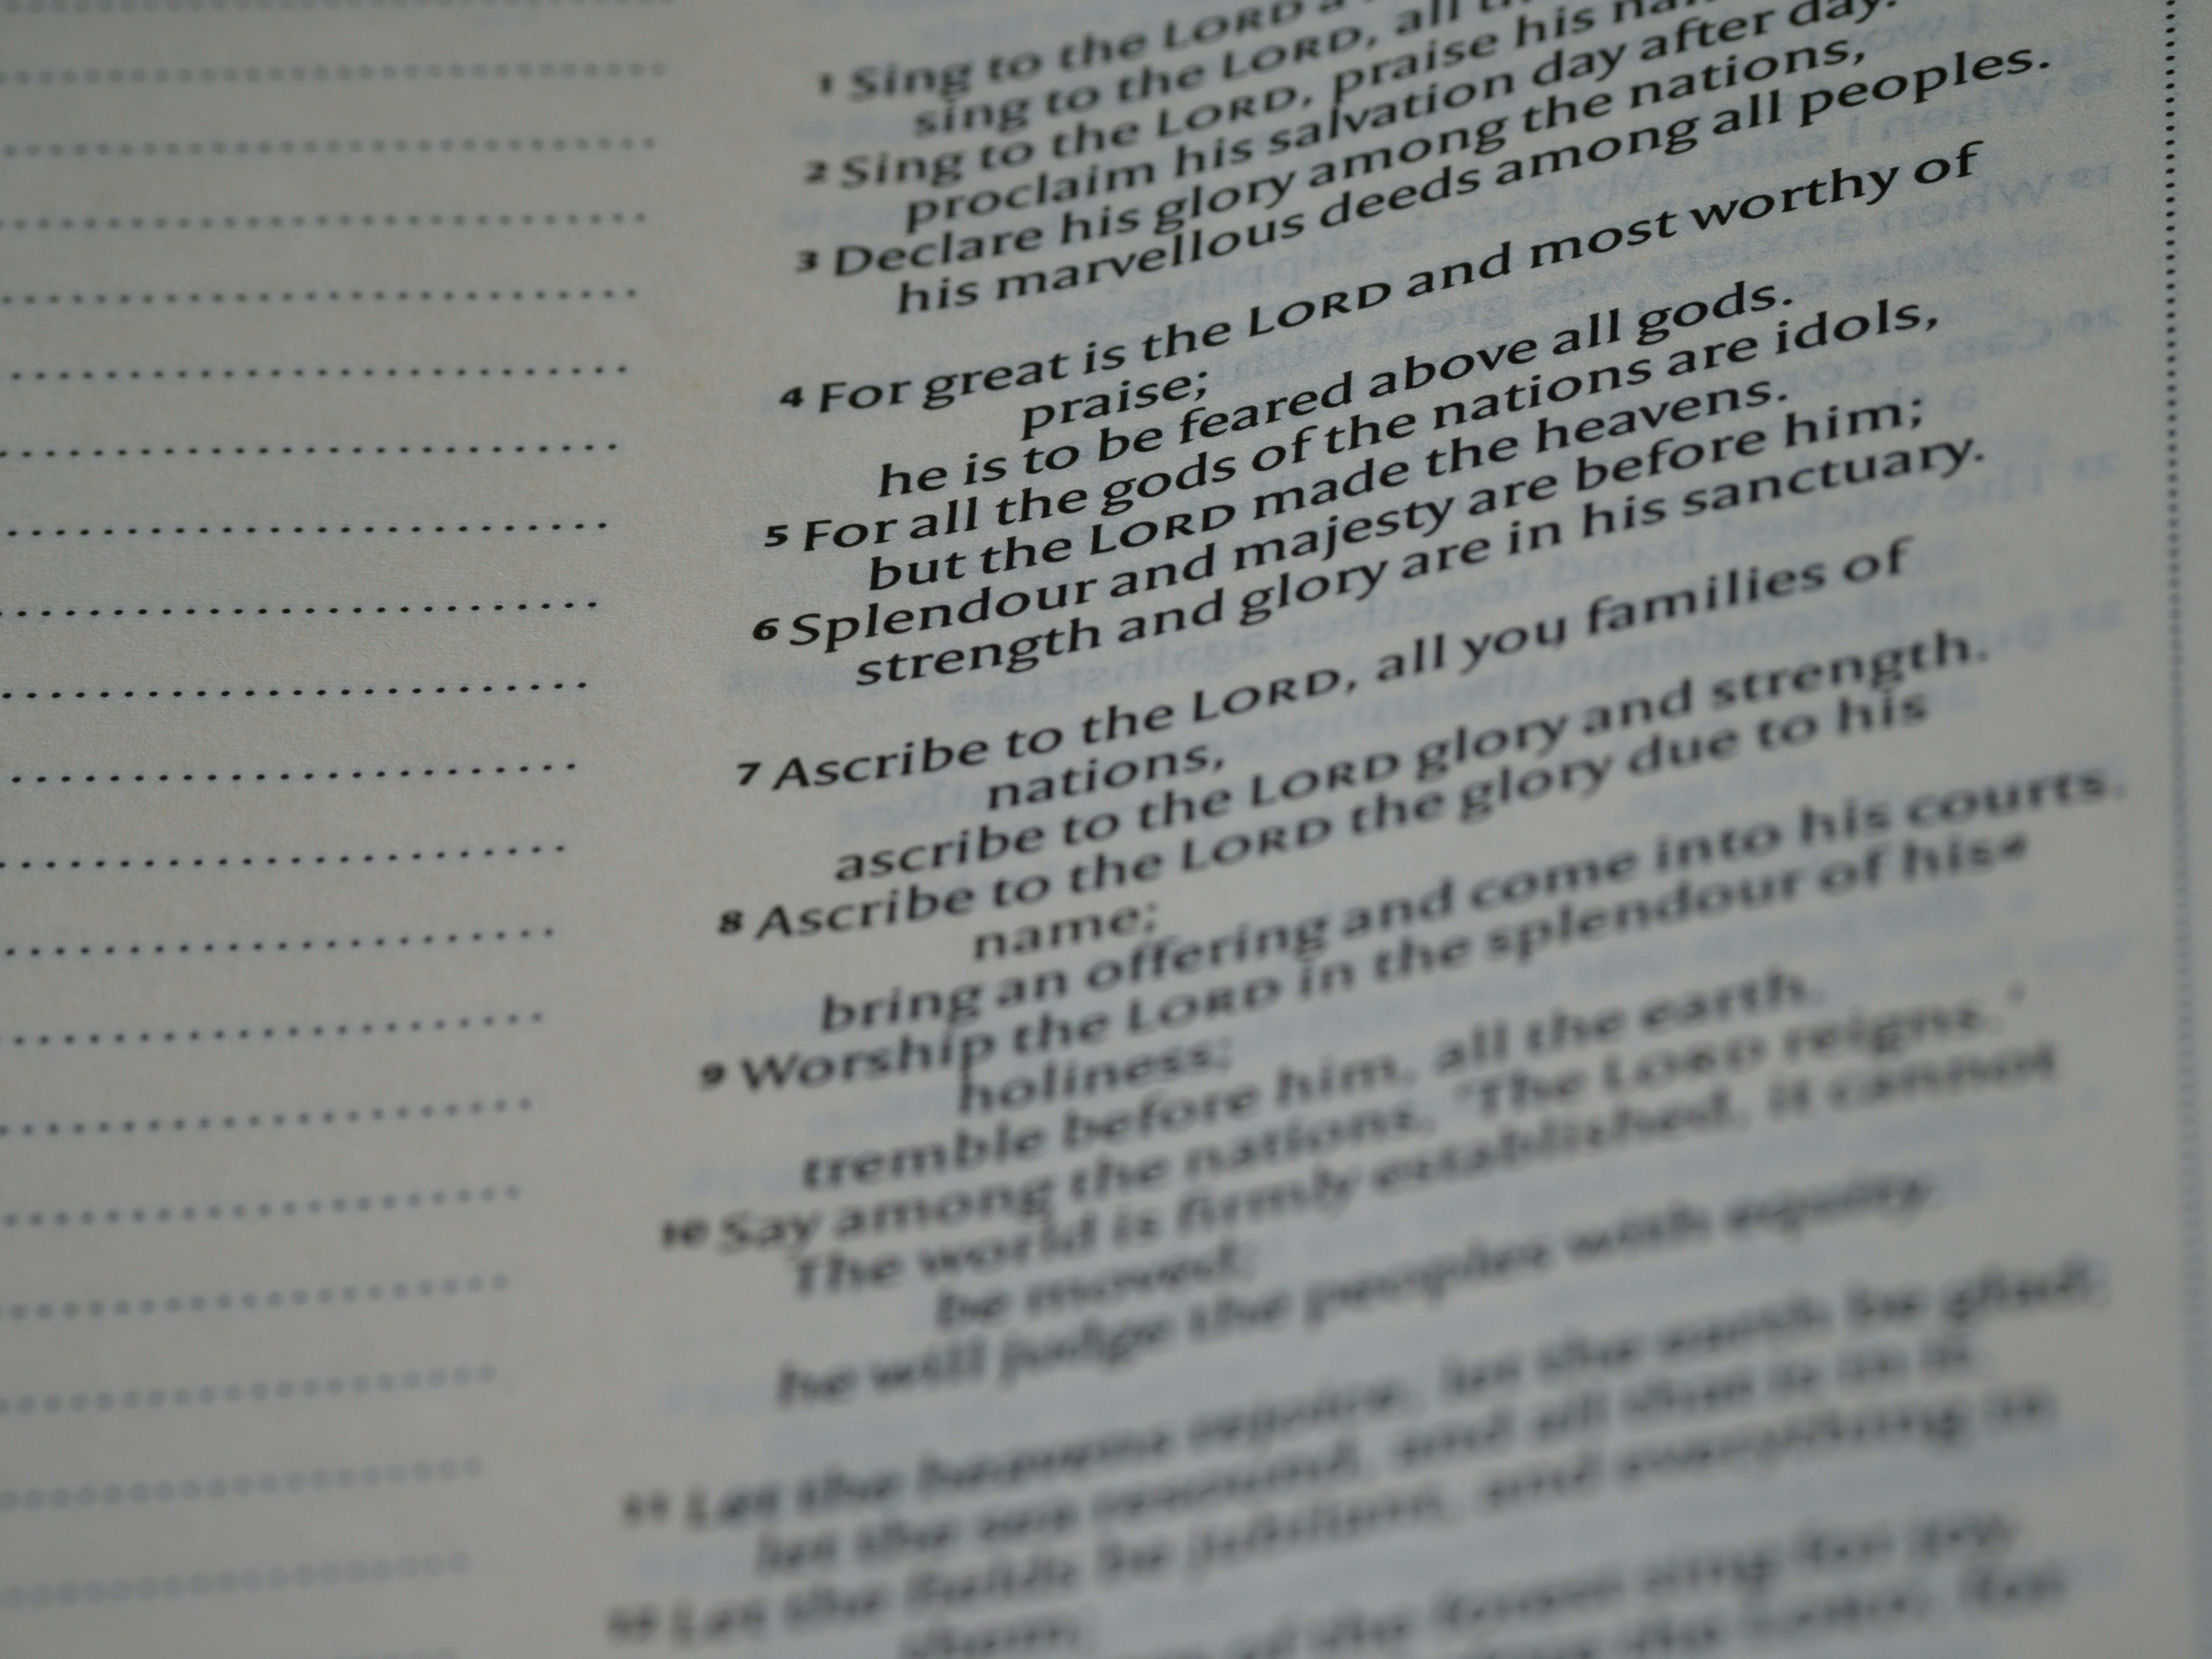 1 Sing to the LORD a
sing to the LORD, all
2 Sing to the LORD, praise his
proclaim his salvation day after day.
3 Declare his glory among the nations,
his marvellous deeds among all peoples.
4 For great is the LORD and most worthy of
praise;
he is to be feared above all gods.
5 For all the gods of the nations are idols,
but the LORD made the heavens.
6 Splendour and majesty are before him;
strength and glory are in his sanctuary.
7 Ascribe to the LORD, all you families of
nations,
ascribe to the LORD glory and strength.
8 Ascribe to the LORD the glory due to his
name;
bring an offering and come into his courts.
9 Worship the LORD in the splendour of his
holiness;
tremble before him, all the earth.
10 Say among the nations, 'The LORD reigns.'
The world is firmly established, it cannot
be moved;
he will judge the peoples with equity.
11 Let the heavens rejoice, let the earth be glad;
let the sea resound, and all that is in it.
12 Let the fields be jubilant, and everything in
them;